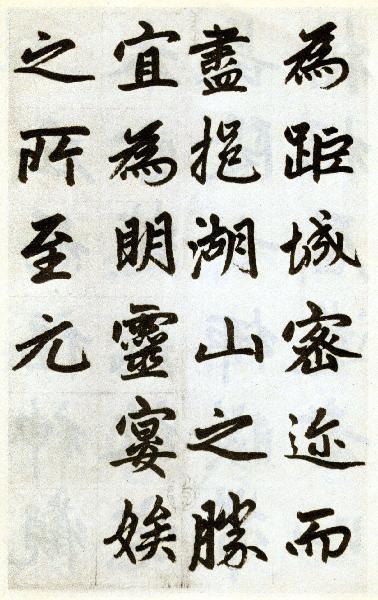 為距城密迩而
盡挹湖山之勝
宜為明靈宴娭
之所至元